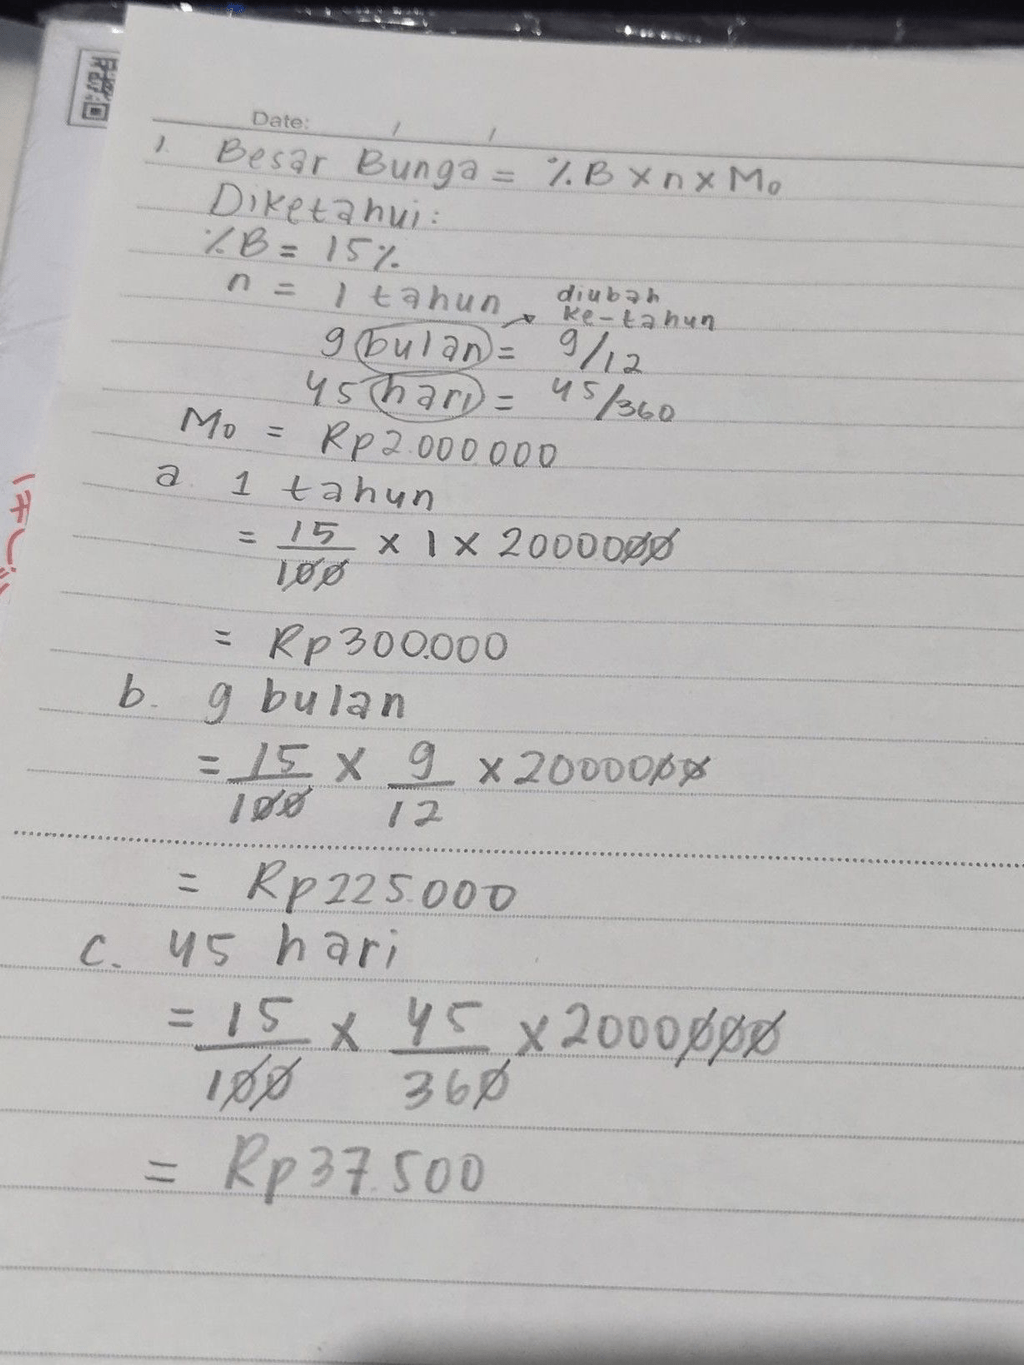 Date: / /
1. Besar Bunga = %B x n x M₀
Diketahui:
%B = 15%
n = 1 tahun
diubah
ke-tahun
9 bulan = 9/12
45 hari = 45/360
M₀ = Rp2.000.000
a. 1 tahun
= 15/100 x 1 x 2000000
= Rp300.000
b. 9 bulan
= 15/100 x 9/12 x 2000000
= Rp225.000
c. 45 hari
= 15/100 x 45/360 x 2000000
= Rp37.500